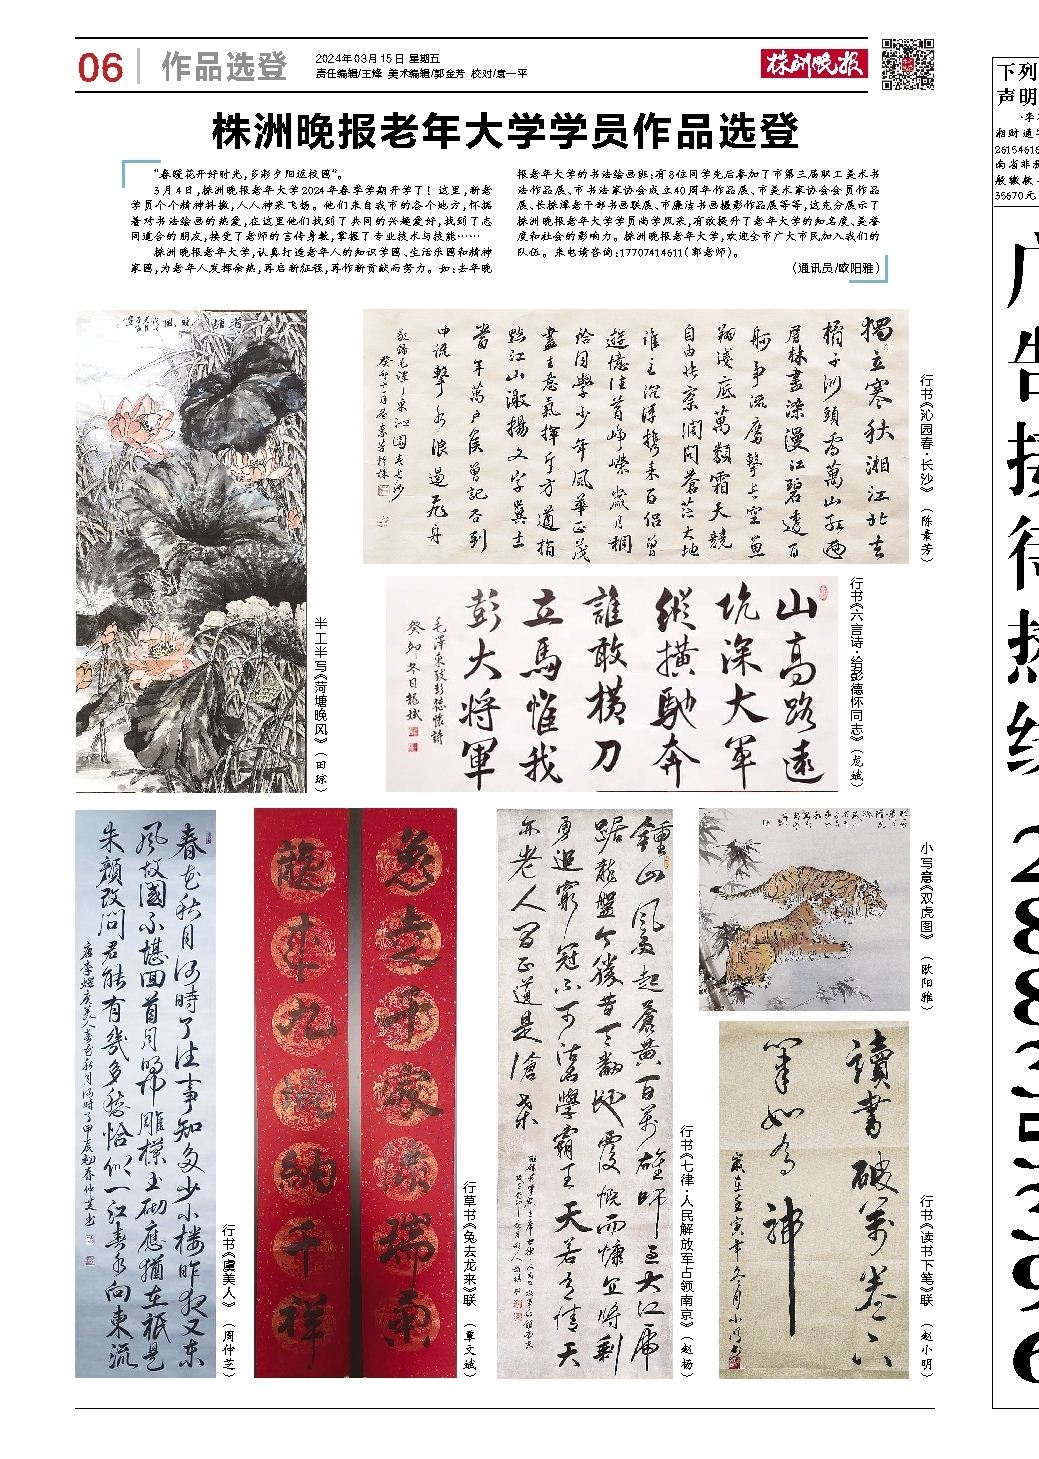 06
作品选登
2024年03月15日 星期五
责任编辑/王烽 美术编辑/郭金芳 校对/袁一平
株洲晚报
株洲晚报老年大学学员作品选登
“春暖花开好时光，多彩夕阳返校园”。
3月4日，株洲晚报老年大学2024年春季学期开学了！这里，新老
学员个个精神抖擞，人人神采飞扬。他们来自我市的各个地方，怀揣
着对书法绘画的热爱，在这里他们找到了共同的兴趣爱好，找到了志
同道合的朋友，接受了老师的言传身教，掌握了专业技术与技能……
株洲晚报老年大学，认真打造老年人的知识学园、生活乐园和精神
家园，为老年人发挥余热，再启新征程，再作新贡献而努力。如：去年晚
报老年大学的书法绘画班：有8位同学先后参加了市第三届职工美术书
法作品展、市书法家协会成立40周年作品展、市美术家协会会员作品
展、长株潭老干部书画联展、市廉洁书画摄影作品展等等，这充分展示了
株洲晚报老年大学学员的学风采，有效提升了老年大学的知名度、美誉
度和社会的影响力。株洲晚报老年大学，欢迎全市广大市民加入我们的
队伍。来电请咨询：17707414611（郭老师）。
（通讯员/欧阳雅）
半工半写《荷塘晚风》（田琮）
獨立寒秋湘江北去
橘子洲頭看萬山紅遍
層林盡染漫江碧透百
舸爭流鷹擊長空魚
翔淺底萬類霜天競
自由悵寥闊問蒼茫大地
誰主沉浮攜來百侶曾
遊憶往昔崢嶸歲月稠
恰同學少年風華正茂
書生意氣揮斥方遒指
點江山激揚文字糞土
當年萬戶侯曾記否到
中流擊水浪遏飛舟
行书《沁园春·长沙》（陈素芳）
山高路遠
坑深大軍
縱橫馳奔
誰敢橫刀
立馬惟我
彭大将軍
毛澤東致彭德懷詩
癸卯冬日龍斌
行书《六言诗·给彭德怀同志》（龙斌）
春花秋月何時了往事知多少小樓昨夜又東
風故國不堪回首月明中雕欄玉砌應猶在祇是
朱顏改問君能有幾多愁恰似一江春水向東流
行书《虞美人》（周仲芝）
兔走千家添瑞气
龍来九域納千祥
行草书《兔去龙来》联（覃文斌）
鍾山風雨起蒼黃百萬雄師過大江虎
踞龍盤今勝昔天翻地覆慨而慷宜將剩
勇追窮寇不可沽名學霸王天若有情天
亦老人間正道是滄桑
行书《七律·人民解放军占领南京》（赵杨）
小写意《双虎图》（欧阳雅）
讀書破萬卷下
筆如有神
行书《读书下笔》联（赵小明）
下列
声明
湘财通
2615461
南省非
35670元
广告接待热线
28835396